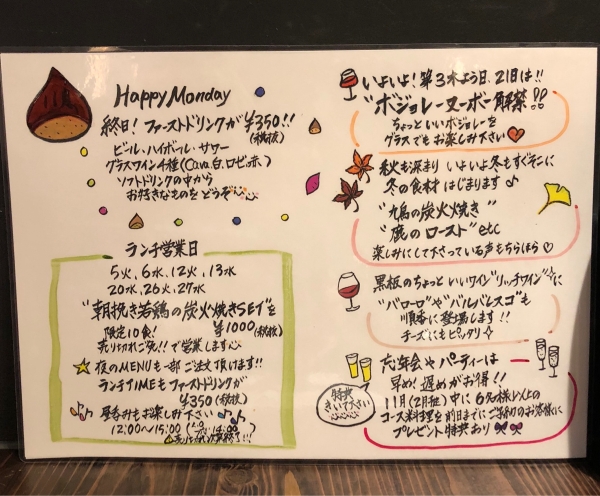 Happy Monday
終日! ファーストドリンクが ¥350!!
(税抜)
ビール・ハイボール・サワー
グラスワイン4種(Cava、白、ロゼ、赤)
ソフトドリンクの中から
お好きなものをどうぞ
ランチ営業日
5火、6水、12火、13水
20水、26火、27水
"朝挽き若鶏の炭火焼きSET"を
限定10食! ¥1000(税抜)
売り切れご免!!で営業します
夜のMENUも一部ご注文頂けます!!
ランチTIMEもファーストドリンクが
¥350(税抜)
昼呑みもお楽しみ下さい
12:00〜15:00
いよいよ!第3木よう日、21日は!!
"ボジョレーヌーボー解禁"!!
ちょっといいボジョレーを
グラスでもお楽しみ下さい
秋も深まり いよいよ冬もすぐそこに
冬の食材 はじまります♪
"鳩の炭火焼き"
"鹿のロースト"etc
楽しみにして下さっている声もちらほら
黒板のちょっといいワイン"リッチワイン"に
"バローロ"や"バルバレスコ"も
順番に登場します!!
チーズにもピッタリ
特典
きいて下さい
忘年会やパーティーは
早め!遅めがお得!!
11月(2月程)中に 6名様以上の
コース料理を前日までにご予約のお客様に
プレゼント特典あり